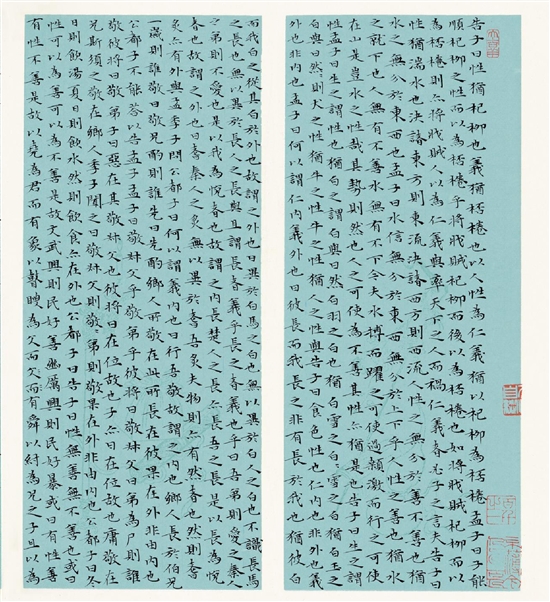 告子曰性猶杞柳也義猶桮棬也以人性為仁義猶以杞柳為桮棬孟子曰子能
順杞柳之性而以為桮棬乎將戕賊杞柳而後以為桮棬也如將戕賊杞柳而以
為桮棬則亦將戕賊人以為仁義與率天下之人而禍仁義者必子之言夫告子曰
性猶湍水也決諸東方則東流決諸西方則西流人性之無分於善不善也猶
水之無分於東西也孟子曰水信無分於東西無分於上下乎人性之善也猶水
之就下也人無有不善水無有不下今夫水搏而躍之可使過顙激而行之可使
在山是豈水之性哉其勢則然也人之可使為不善其性亦猶是也告子曰生之謂
性孟子曰生之謂性也猶白之謂白與曰然白羽之白也猶白雪之白白雪之白猶白玉之
白與曰然然則犬之性猶牛之性牛之性猶人之性與告子曰食色性也仁內也非外也義
外也非內也孟子曰何以謂仁內義外也曰彼長而我長之非有長於我也猶彼白
而我白之從其白於外也故謂之外也曰異於白馬之白也無以異於白人之白也不識長馬
之長無以異於長人之長與且謂長者義乎長之者義乎曰吾弟則愛之秦人
之弟則不愛也是以我為悅者也故謂之內長楚人之長亦長吾之長是以長為悅
者也故謂之外也曰耆秦人之炙無以異於耆吾炙夫物則亦有然者也然則耆
炙亦有外與孟季子問公都子曰何以謂義內也曰行吾敬故謂之內也鄉人長於伯兄
一歲則誰敬曰敬兄酌則誰先曰先酌鄉人所敬在此所長在彼果在外非由內也
公都子不能答以告孟子孟子曰敬叔父乎敬弟乎彼將曰敬叔父曰弟為尸則誰
敬彼將曰敬弟子曰惡在其敬叔父也彼將曰在位故也子亦曰在位故也庸敬在
兄斯須之敬在鄉人季子聞之曰敬叔父則敬敬弟則敬果在外非由內也公都子曰冬
日則飲湯夏日則飲水然則飲食亦在外也公都子曰告子曰性無善無不善也或曰
性可以為善可以為不善是故文武興則民好善幽厲興則民好暴或曰有性善
有性不善是故以堯為君而有象以瞽瞍為父而有舜以紂為兄之子且以為